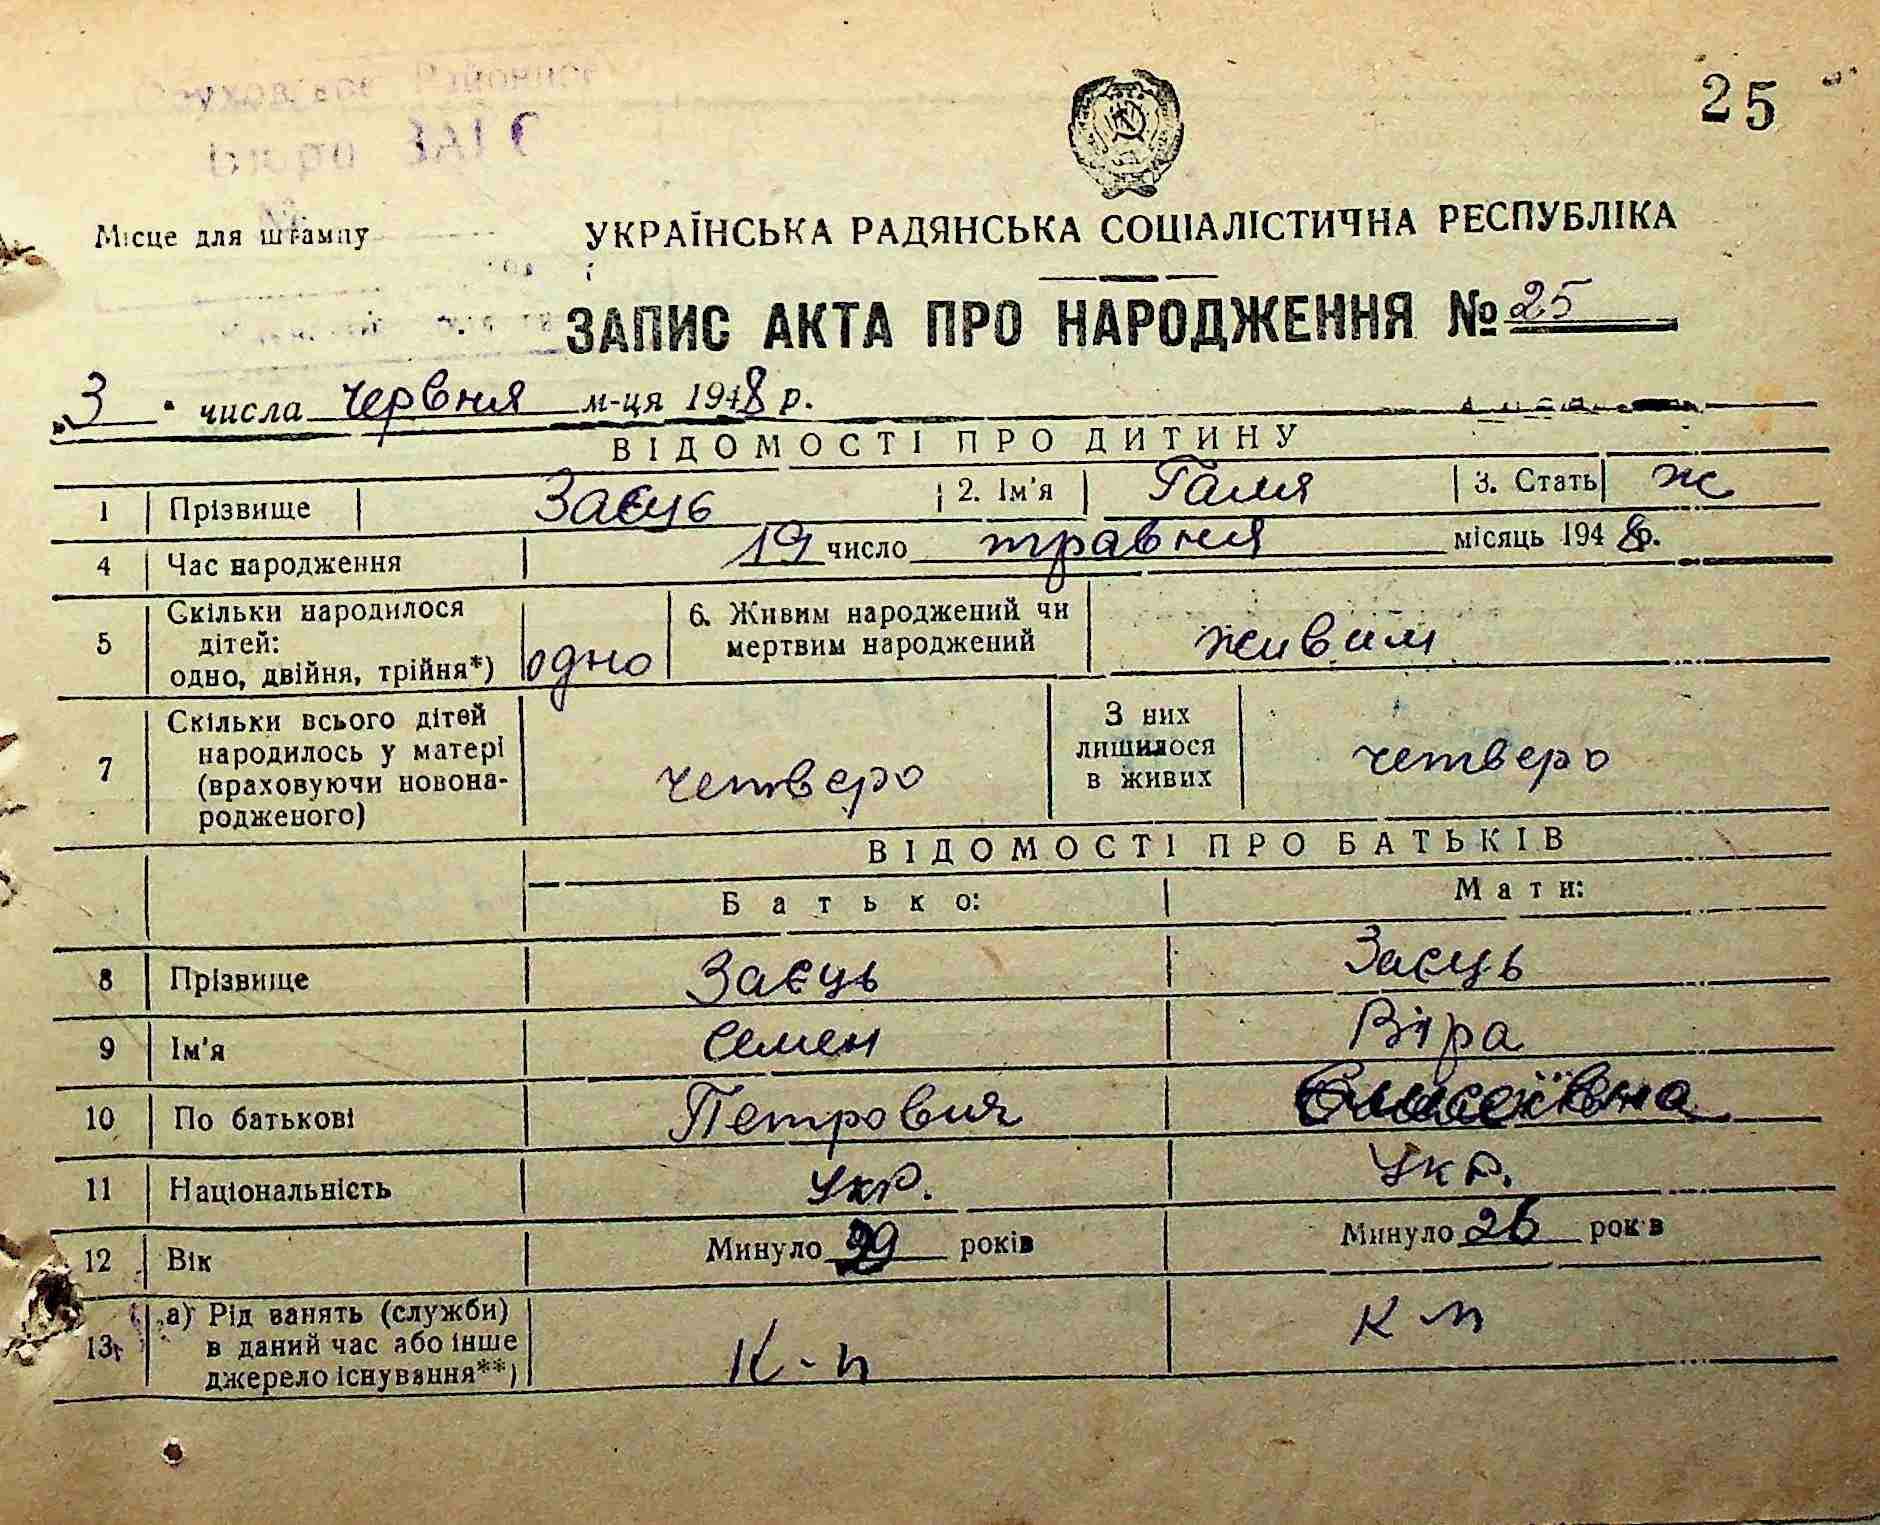 25
Районное
Бюро ЗАГС
Місце для штампу
УКРАЇНСЬКА РАДЯНСЬКА СОЦІАЛІСТИЧНА РЕСПУБЛІКА
ЗАПИС АКТА ПРО НАРОДЖЕННЯ № 25
„3" числа червня м-ця 1948 р.
ВІДОМОСТІ ПРО ДИТИНУ
1 Прізвище Заєць 2. Ім'я Галя 3. Стать ж
4 Час народження 19 число травня місяць 1948 р.
5 Скільки народилося дітей: одно, двійня, трійня*) одно 6. Живим народжений чи мертвим народжений живим
7 Скільки всього дітей народилось у матері (враховуючи новонародженого) четверо З них лишилося в живих четверо
ВІДОМОСТІ ПРО БАТЬКІВ
Батько: Мати:
8 Прізвище Заєць Заєць
9 Ім'я Семен Віра
10 По батькові Петрович Єлисеївна
11 Національність укр. укр.
12 Вік Минуло 39 років Минуло 26 років
13 а) Рід занять (служби) в даний час або інше джерело існування**) К-п К п